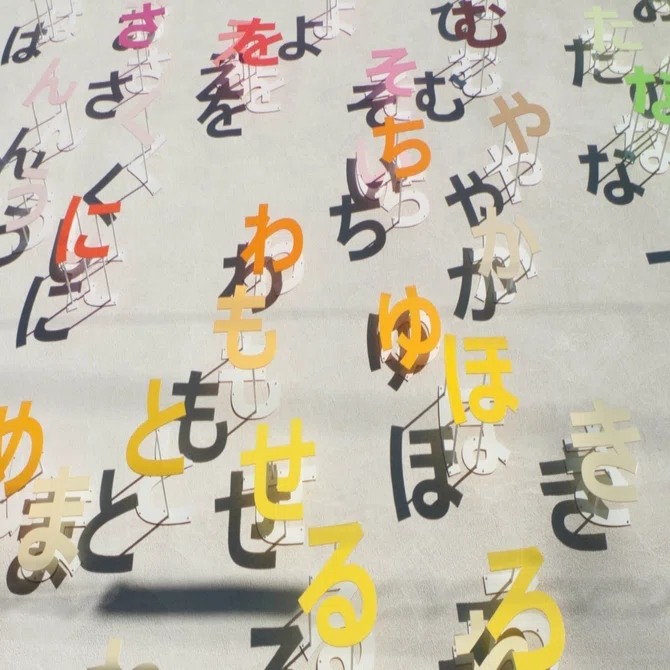 さ を む た
ん く そ や な
ち
に わ か
も ゆ ほ
め と せ き
ま
る る